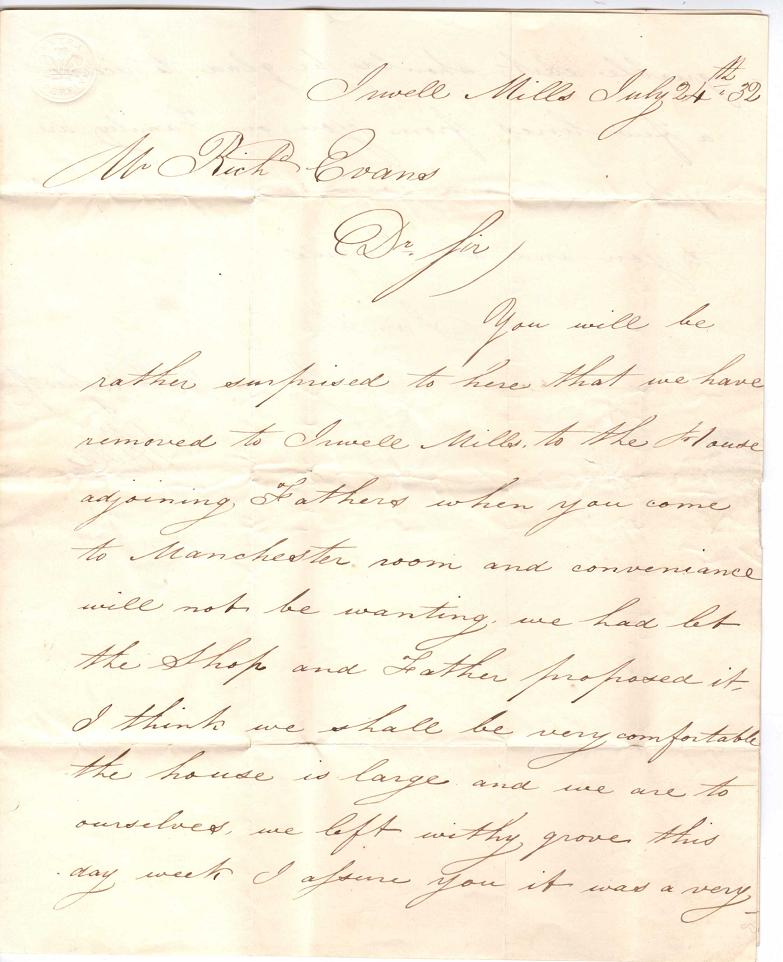 Irwell Mills July 24th 32
Mr Richd Evans
Dr. Sir
You will be
rather surprised to here that we have
removed to Irwell Mills. to the House
adjoining Fathers when you come
to Manchester room and conveniance
will not be wanting. we had let
the Shop and Father proposed it.
I think we shall be very comfortable
the house is large and we are to
ourselves. we left withy grove this
day week I assure you it was a very